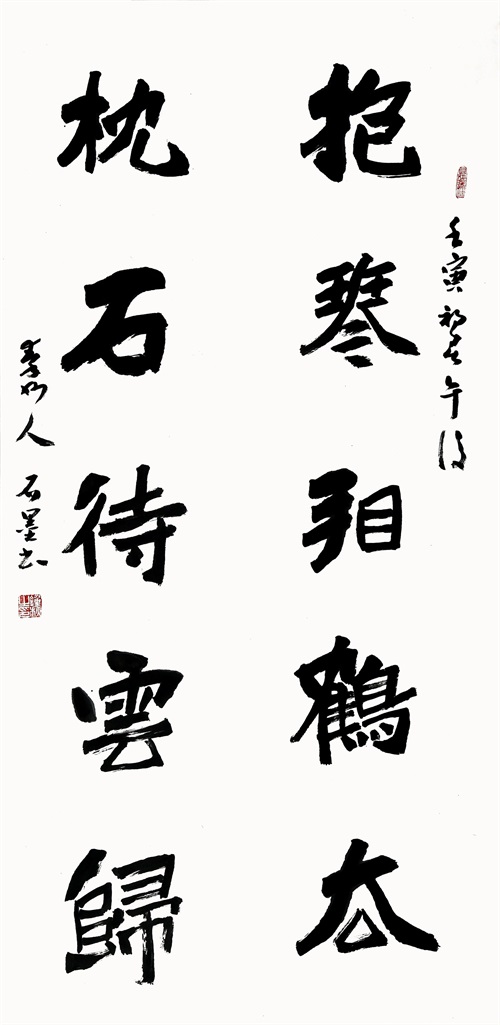 壬寅初春午後
抱琴看鶴去
枕石待雲歸
州人石墨书